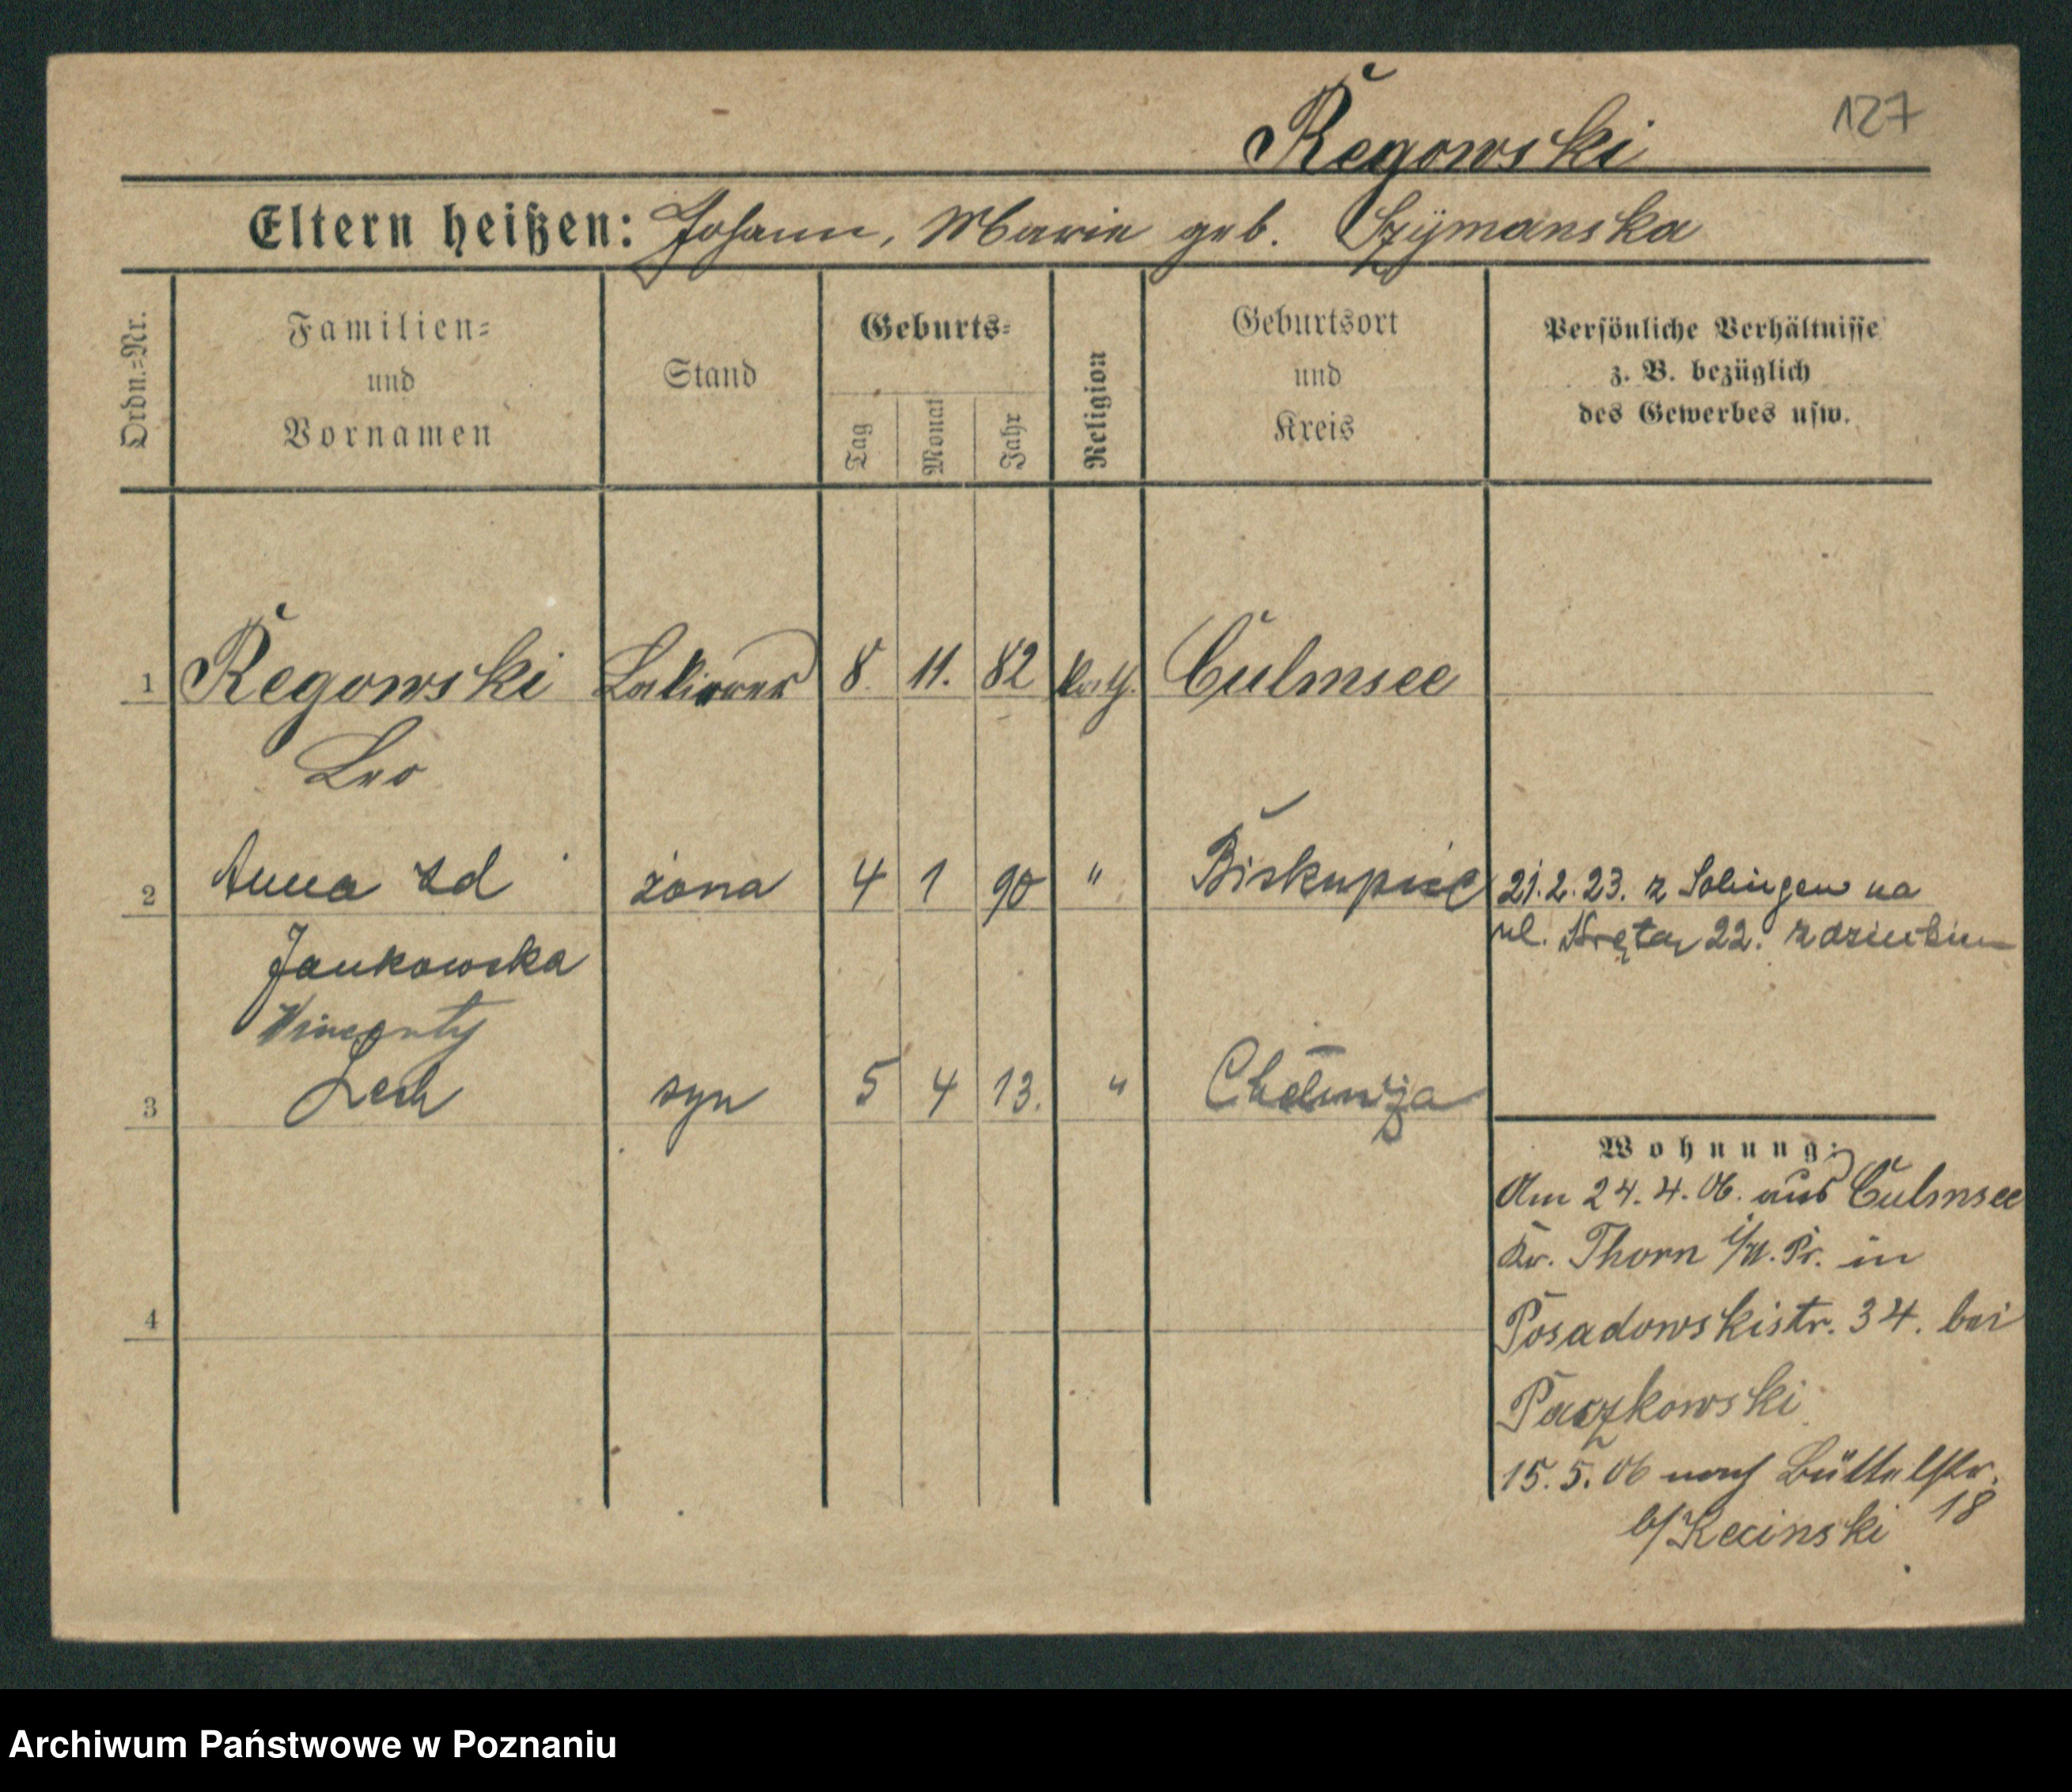 127
Regowski
Eltern heißen: Johann, Marie geb. Szymanska
Ordn.-Nr.
Familien-
und
Vornamen
Stand
Geburts-
Tag
Monat
Jahr
Religion
Geburtsort
und
Kreis
Persönliche Verhältnisse
z. B. bezüglich
des Gewerbes usw.
1 Regowski Lakierer 8. 11. 82 kath. Culmsee
Leo
2 Anna zd żona 4 1 90 " Biskupiec 21.2.23. z Solingen na
Jankowska ul. Kręta 22. z dzieckiem
Wincenty
3 Lech syn 5 4 13. " Chełmża
4
Wohnung:
Am 24.4.06. aus Culmsee
Kr. Thorn i/W. Pr. in
Posadowskistr. 34. bei
Paczkowski
15.5.06 nach Büttelstr.
18
b/